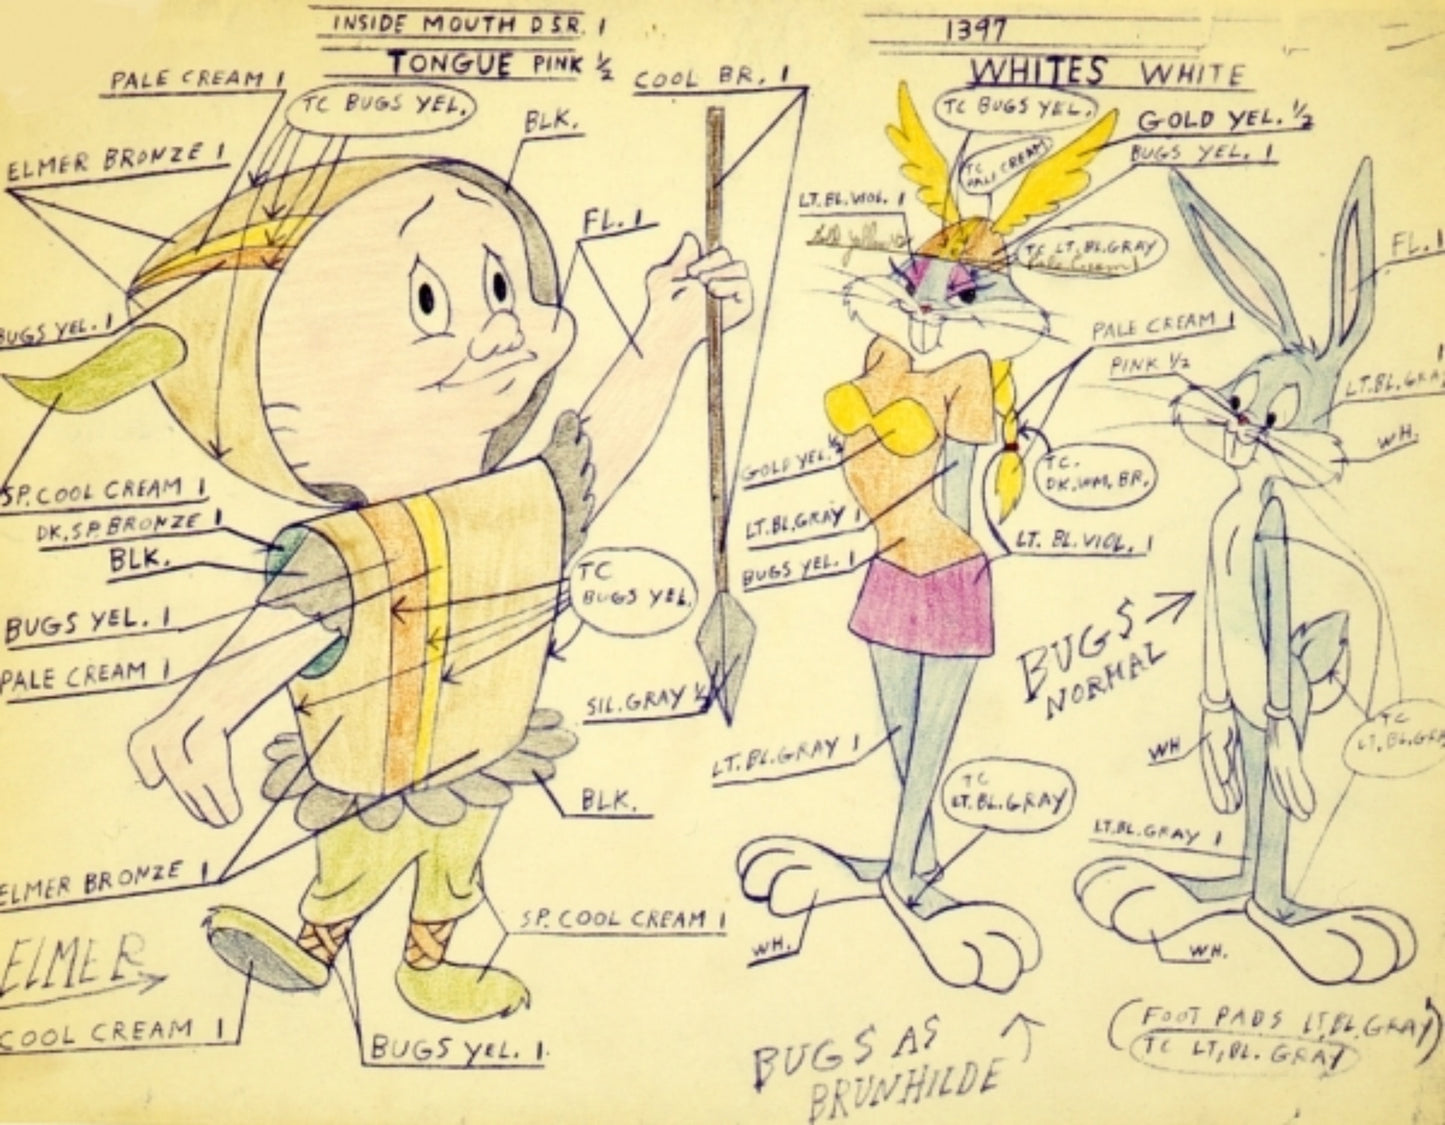 INSIDE MOUTH D.S.R. 1
TONGUE PINK ½
1397
WHITES WHITE
PALE CREAM 1
TC BUGS YEL.
ELMER BRONZE 1
BLK.
COOL BR. 1
FL. 1
BUGS YEL. 1
SP. COOL CREAM 1
DK. SP. BRONZE 1
BLK.
BUGS YEL. 1
PALE CREAM 1
TC
BUGS YEL.
SIL. GRAY ½
BLK.
ELMER BRONZE 1
SP. COOL CREAM 1
ELMER
COOL CREAM 1
BUGS YEL. 1.
TC BUGS YEL.
GOLD YEL. ½
TC
PALE CREAM
BUGS YEL. 1
LT. BL. VIOL. 1
TC LT. BL. GRAY
Pale Cream 1
PALE CREAM 1
PINK ½
GOLD YEL. ½
TC.
DK. WM. BR.
LT. BL. GRAY 1
BUGS YEL. 1
LT. BL. VIOL. 1
LT. BL. GRAY 1
TC
LT. BL. GRAY
WH.
BUGS AS
BRUNHILDE
FL. 1
LT. BL. GRAY
WH.
BUGS
NORMAL
WH
TC
LT. BL. GRA
LT. BL. GRAY 1
WH.
(FOOT PADS LT. BL. GRAY)
TC LT. BL. GRAY